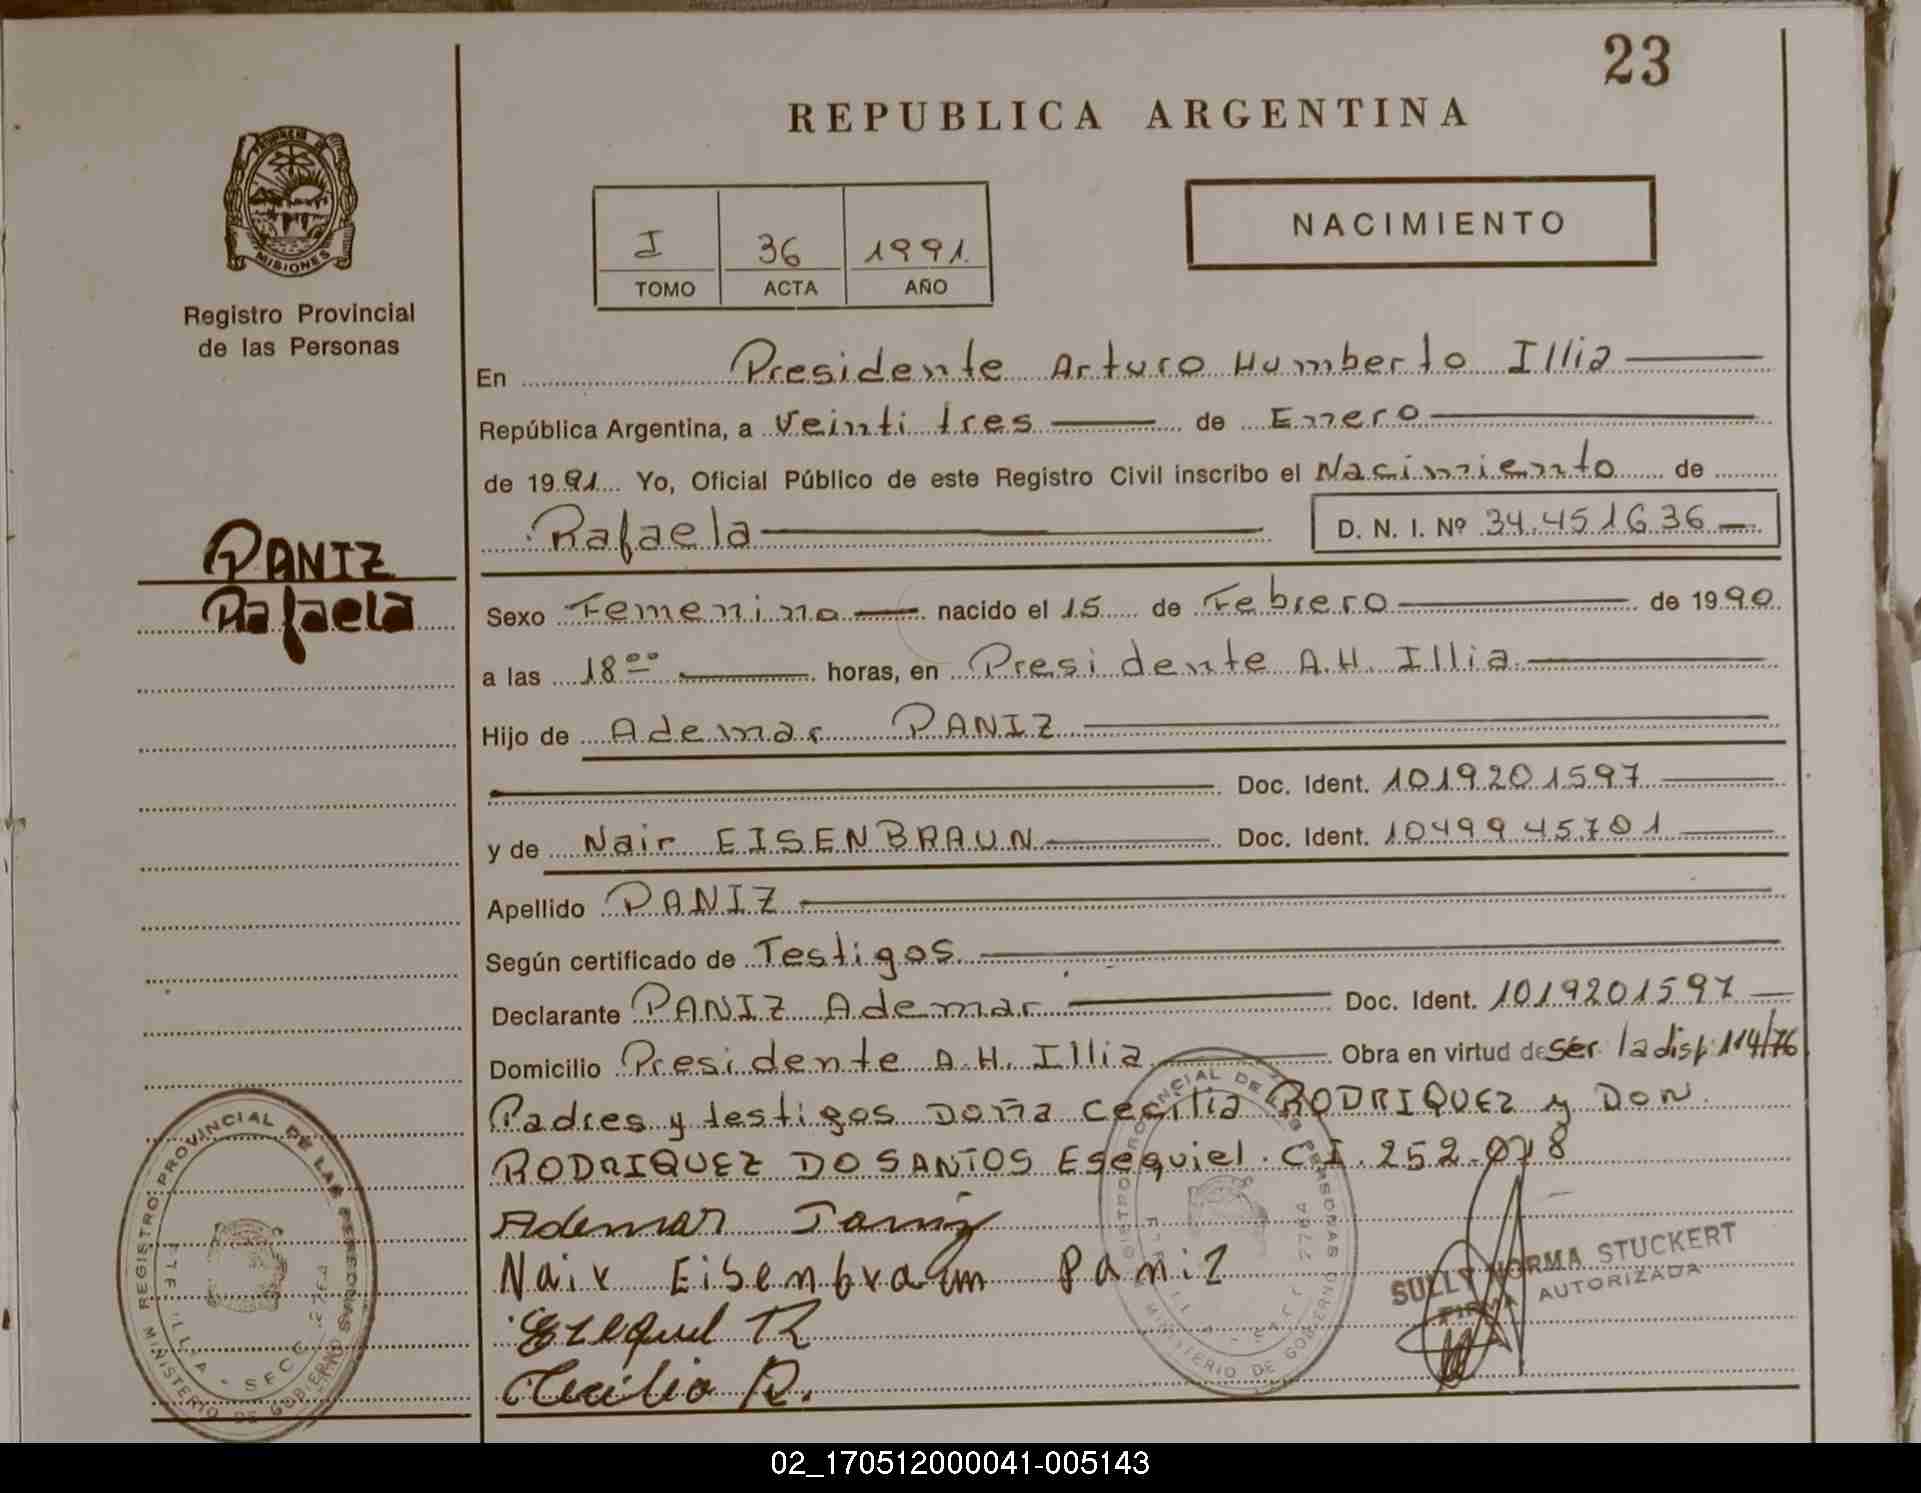 23
REPUBLICA ARGENTINA
PROVINCIA DE
MISIONES
Registro Provincial
de las Personas
I 36 1991
TOMO ACTA AÑO
NACIMIENTO
En Presidente Arturo Humberto Illia
República Argentina, a Veinti tres de Enero
de 1991 Yo, Oficial Público de este Registro Civil inscribo el Nacimiento de
Rafaela D. N. I. Nº 34.451636
PANIZ
Rafaela
Sexo Femenino nacido el 15 de Febrero de 1990
a las 18 ºº horas, en Presidente A.H. Illia
Hijo de Ademar PANIZ
Doc. Ident. 1019201597
y de Nair EISENBRAUN Doc. Ident. 1049945701
Apellido PANIZ
Según certificado de Testigos
Declarante PANIZ Ademar Doc. Ident. 1019201597
Domicilio Presidente A.H. Illia Obra en virtud de ser la disp 114/76
Padres y testigos Doña Cecilia RODRIQUEZ y DON
RODRIQUEZ DO SANTOS Esequiel. C.I. 252.078
Ademar Paniz
Nair Eisenbraun Paniz
Ezequiel R
Cecilia R.
SULLY NORMA STUCKERT
FIRMA AUTORIZADA
REGISTRO PROVINCIAL DE LAS PERSONAS
MINISTERIO DE GOBIERNO
REGISTRO PROVINCIAL DE LAS PERSONAS
MINISTERIO DE GOBIERNO
02_170512000041-005143